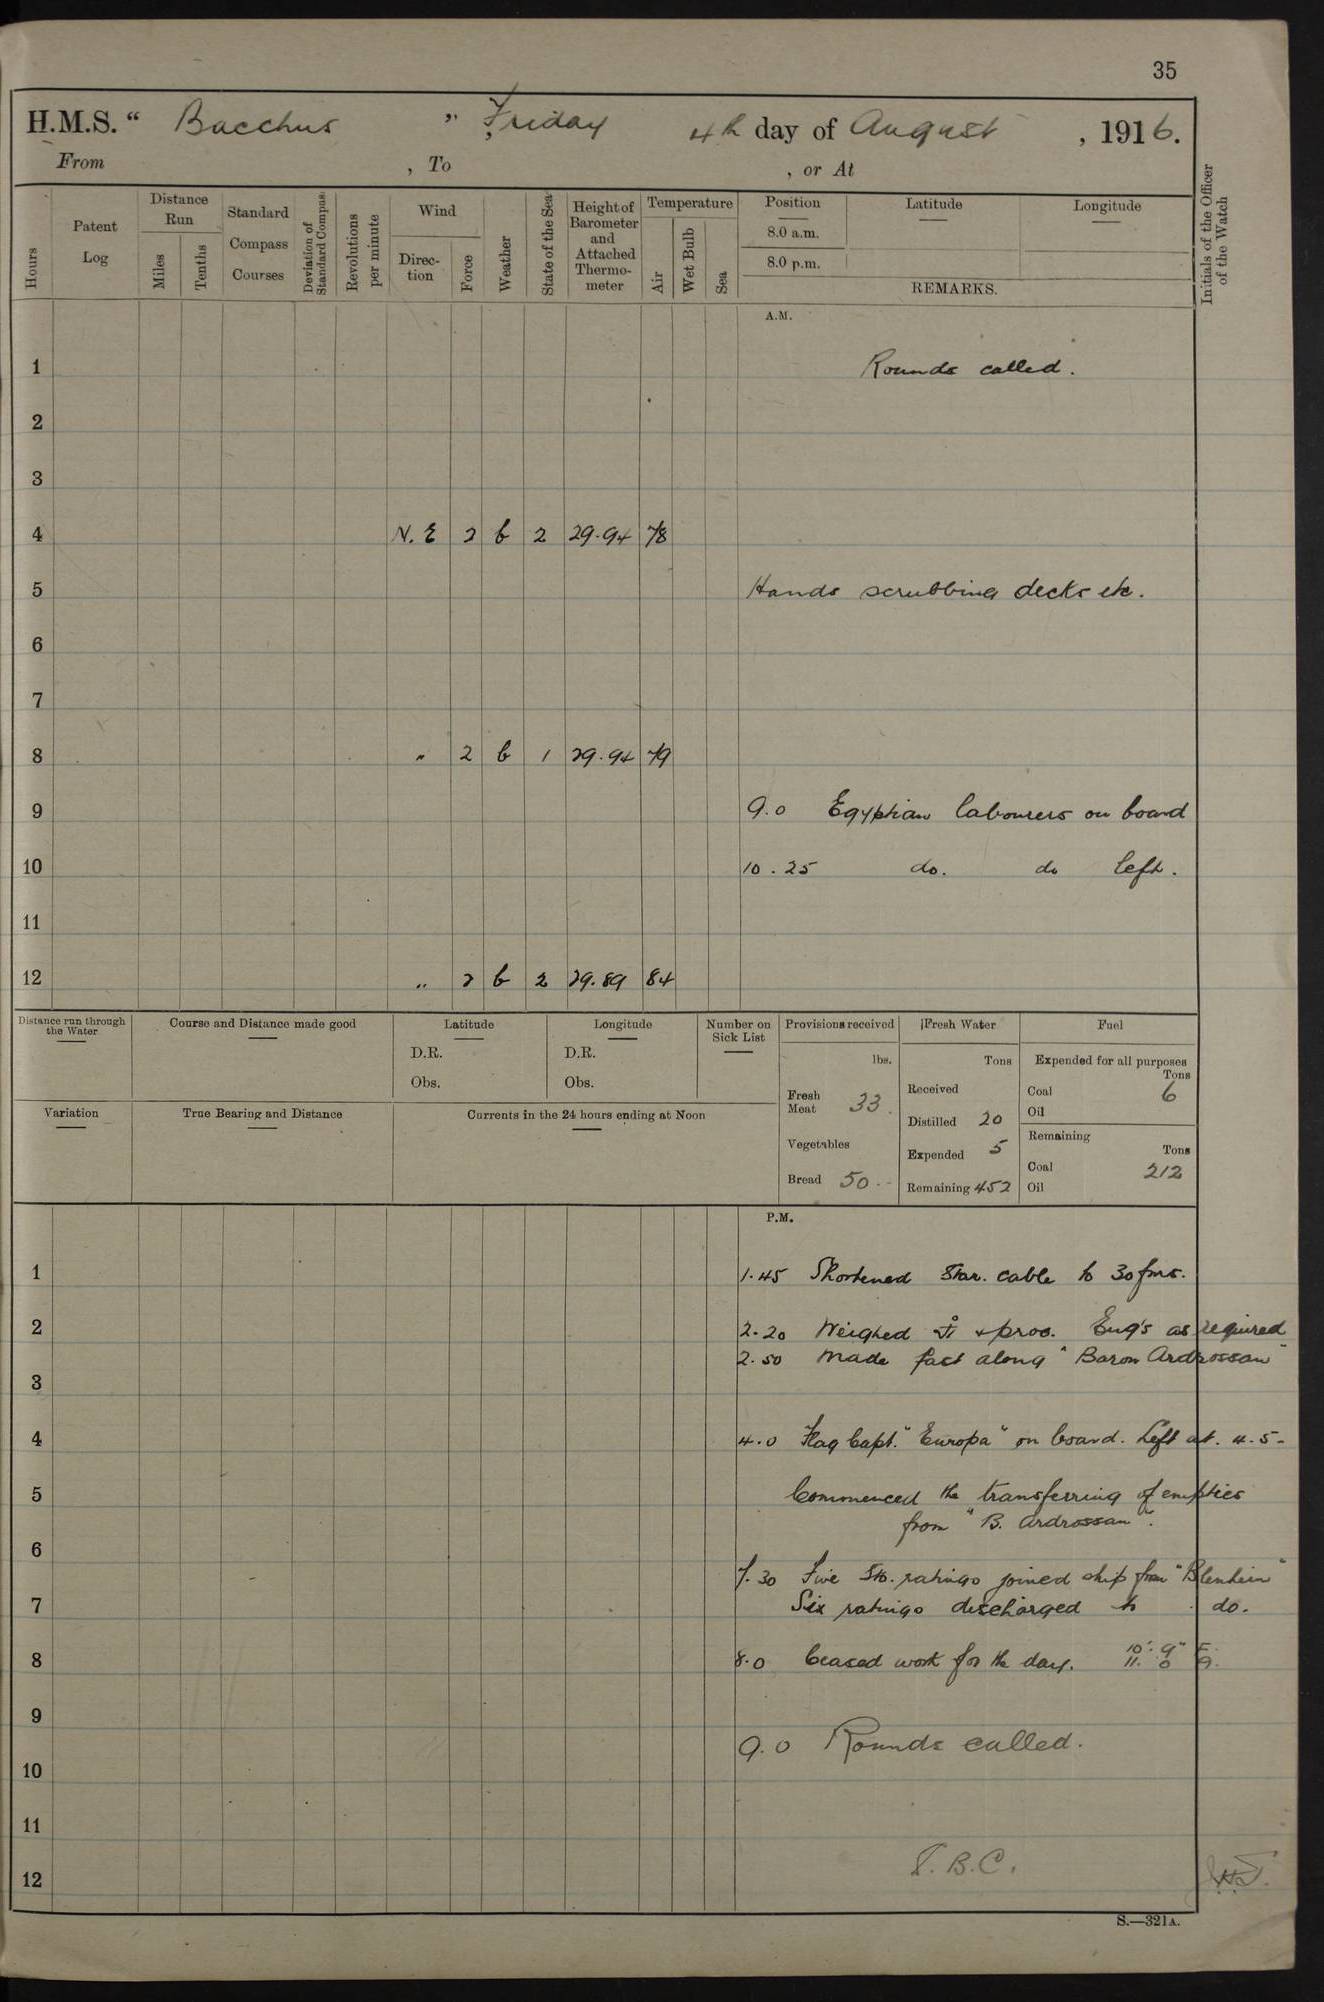 35
H.M.S. " Bacchus " Friday 4th day of August , 1916.
From , To , or At
Hours
Patent Log
Distance Run
Miles
Tenths
Standard Compass Courses
Deviation of Standard Compass
Revolutions per minute
Wind
Direction
Force
Weather
State of the Sea
Height of Barometer and Attached Thermometer
Temperature
Air
Wet Bulb
Sea
Position
8.0 a.m.
8.0 p.m.
Latitude
Longitude
REMARKS.
Initials of the Officer of the Watch
A.M.
1 Rounds called.
2
3
4 N.E 2 b 2 29.94 78
5 Hands scrubbing decks etc.
6
7
8 " 2 b 1 29.94 79
9 9.0 Egyptian labourers on board
10 10.25 do. do left.
11
12 " 2 b 2 29.89 84
Distance run through the Water
Course and Distance made good
Latitude
D.R.
Obs.
Longitude
D.R.
Obs.
Number on Sick List
Provisions received
lbs.
Fresh Meat 33
Vegetables
Bread 50
Fresh Water
Tons
Received
Distilled 20
Expended 5
Remaining 452
Fuel
Expended for all purposes
Tons
Coal 6
Oil
Remaining
Tons
Coal 212
Oil
Variation
True Bearing and Distance
Currents in the 24 hours ending at Noon
P.M.
1 1.45 Shortened Star. cable to 30 fms.
2 2.20 Weighed & proc. Eng's as required
2.50 Made fast along "Baron Ardrossan"
3
4 4.0 Flag Capt. "Europa" on board. Left at. 4.5-
5 Commenced the transferring of empties
from "B. Ardrossan".
6
7.30 Five Sto. ratings joined ship from "Blenheim"
7 Six ratings discharged to do.
8 8.0 Ceased work for the day. 10'. 9" F.
11. 0 A.
9
9.0 Rounds called.
10
11
12 T.B.C.
S.—321A.